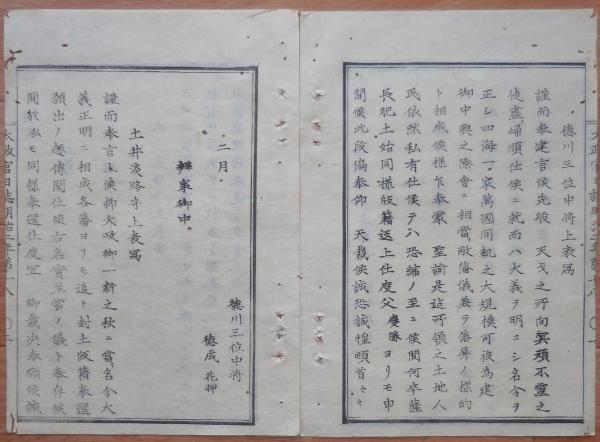 徳川三位中将上表寫
謹而奉建言候先般 天戈之所向冥頑不靈之
徒盡歸順仕候ニ就而ハ大義ヲ明ニシ名分ヲ
正シ四海一家萬國同軌之大規模可被為建
御中興之際會ニ相當敝藩儀兼テ藩屏ノ標的
ト相成候様乍奉蒙 聖諭是迄所領之土地人
民依然私有仕候テハ恐縮ノ至ニ候間何卒薩
長肥土始同様版籍返上仕度父慶勝ヨリモ申
聞候此段偏奉仰 天裁候誠恐誠惶頓首々々
二月
徳川三位中将
徳成 花押
辨事御中
土井淡路守上表寫
謹而奉言上候抑大政御一新之秋ニ當名分大
義正明ニ相成各藩ヨリモ追々封土版籍奉還
願出ノ趣傳聞仕候右名實至當ノ儀ト奉存候
間敝私モ同様奉還仕度 御裁決奉願候誠
太政官日誌明治二年第十八